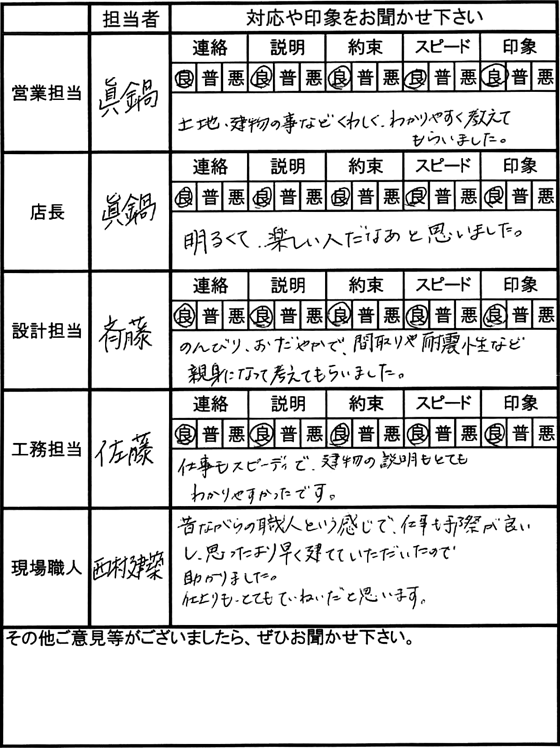 担当者 対応や印象をお聞かせ下さい
営業担当 眞鍋
連絡 説明 約束 スピード 印象
良 普 悪 良 普 悪 良 普 悪 良 普 悪 良 普 悪
土地、建物の事などくわしく、わかりやすく教えて
もらいました。
店長 眞鍋
連絡 説明 約束 スピード 印象
良 普 悪 良 普 悪 良 普 悪 良 普 悪 良 普 悪
明るくて、楽しい人だなあと思いました。
設計担当 斉藤
連絡 説明 約束 スピード 印象
良 普 悪 良 普 悪 良 普 悪 良 普 悪 良 普 悪
のんびり、おだやかで、間取りや耐震性など
親身になって考えてもらいました。
工務担当 佐藤
連絡 説明 約束 スピード 印象
良 普 悪 良 普 悪 良 普 悪 良 普 悪 良 普 悪
仕事もスピーディで、建物の説明もとても
わかりやすかったです。
現場職人 西村建築
昔ながらの職人という感じで、仕事も手際が良い
し、思ったより早く建てていただいたので
助かりました。
仕上りも、とてもていねいだと思います。
その他ご意見等がございましたら、ぜひお聞かせ下さい。